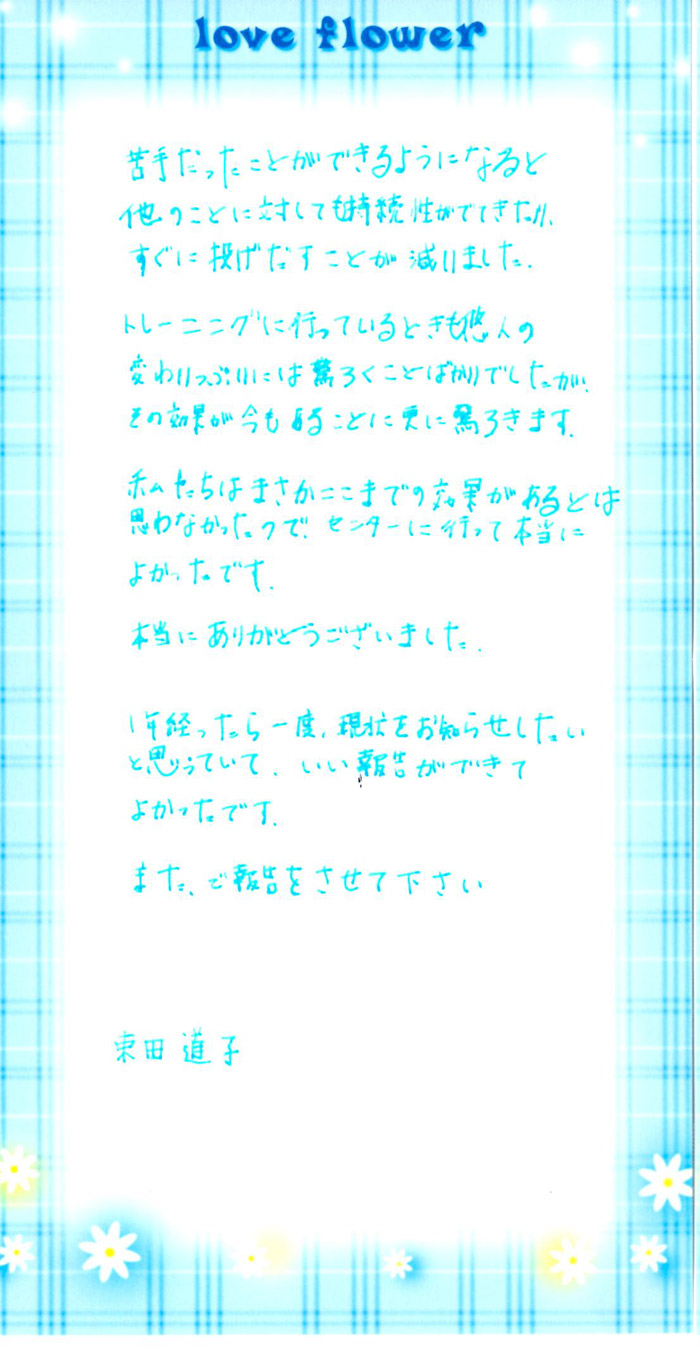 love flower
苦手だったことができるようになると
他のことに対しても持続性がでてきたり、
すぐに投げだすことが減りました。
トレーニングに行っているときも悠人の
変わりっぷりには驚ろくことばかりでしたが、
その効果が今もあることに更に驚ろきます。
私たちはまさかここまでの効果があるとは
思わなかったので、センターに行って本当に
よかったです。
本当にありがとうございました。
1年経ったら一度、現状をお知らせしたい
と思っていて、いい報告ができて
よかったです。
また、ご報告をさせて下さい
東田 道子